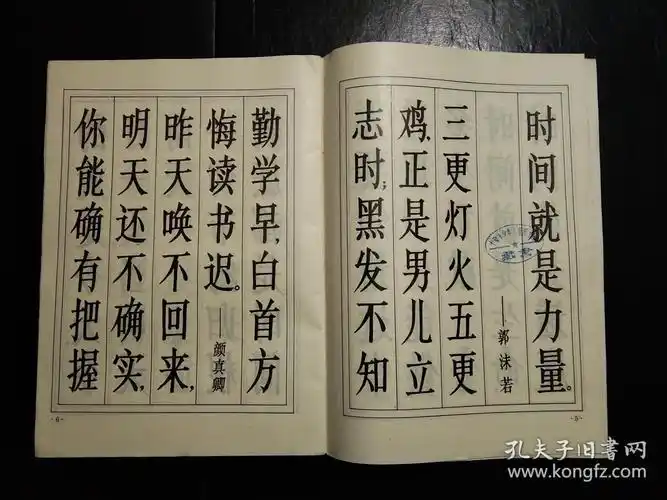 时间就是力量。
——郭沫若
三更灯火五更
鸡,正是男儿立
志时;黑发不知
·5·
勤学早,白首方
悔读书迟。
——颜真卿
昨天唤不回来,
明天还不确实,
你能确有把握
·6·
孔夫子旧书网
www.kongfz.com